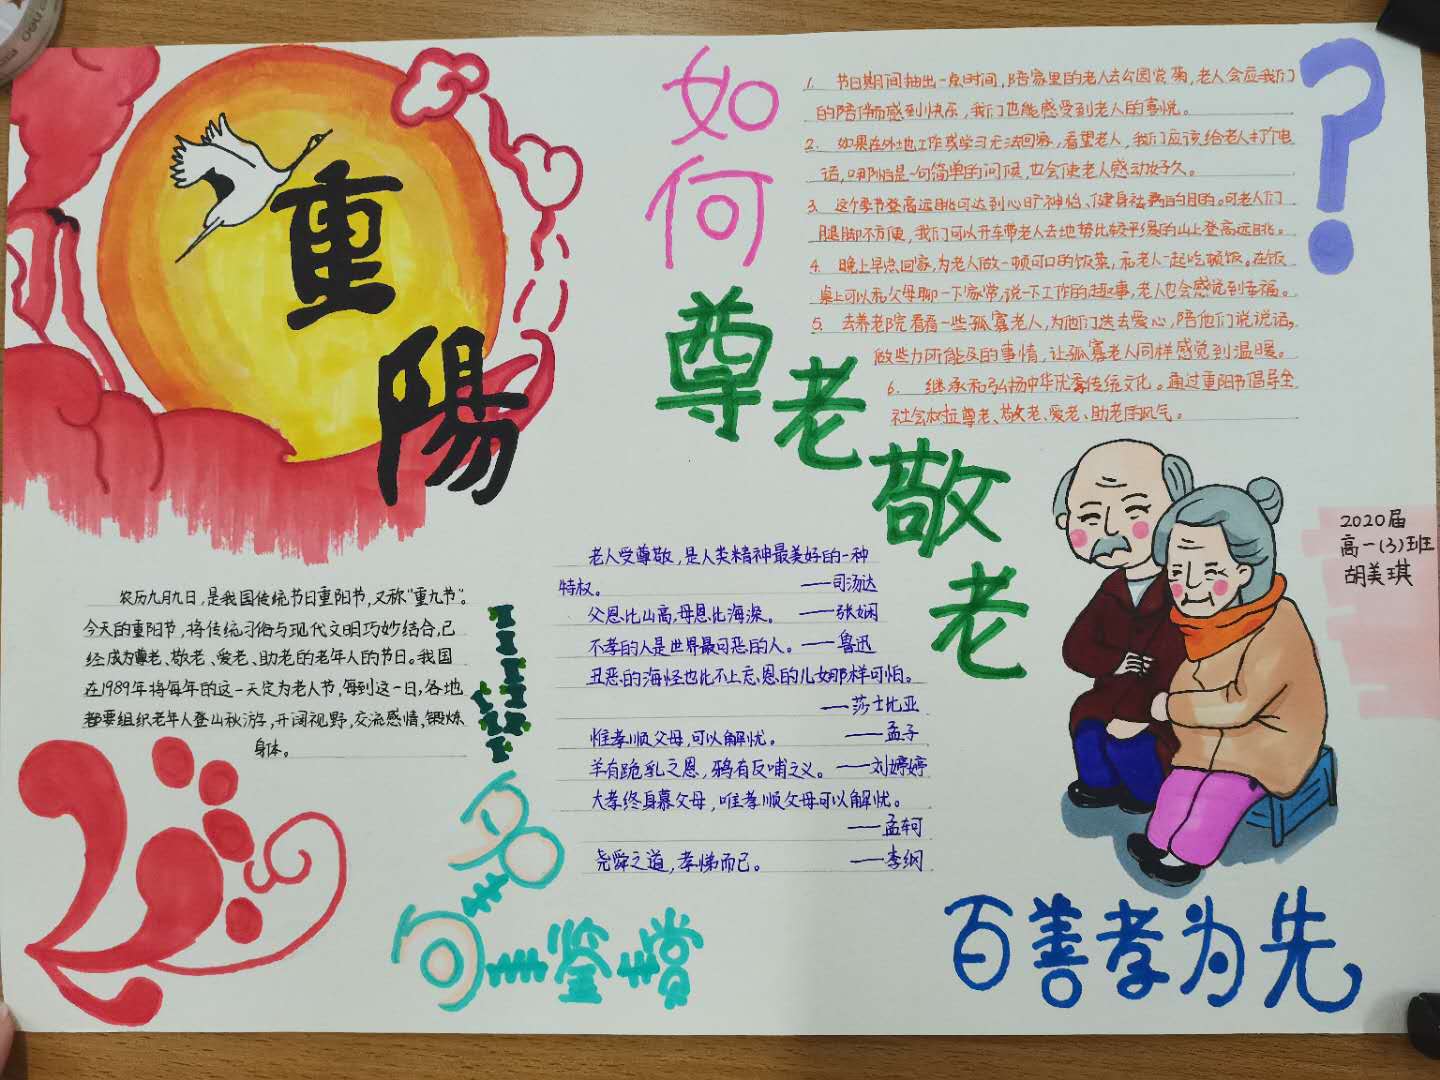 重
陽
农历九月九日，是我国传统节日重阳节，又称“重九节”。
今天的重阳节，将传统习俗与现代文明巧妙结合，已
经成为尊老、敬老、爱老、助老的老年人的节日。我国
在1989年将每年的这一天定为老人节，每到这一日，各地
都要组织老年人登山秋游，开阔视野，交流感情，锻炼
身体。
如
何
尊
老
敬
老
？
1. 节日期间抽出一点时间，陪家里的老人去公园赏菊，老人会应我们
的陪伴而感到快乐，我们也能感受到老人的喜悦。
2. 如果在外地工作或学习无法回家，看望老人，我们应该给老人打个电
话，哪怕是一句简单的问候，也会使老人感动好久。
3. 这个季节登高远眺可达到心旷神怡、健身祛病的目的。可老人们
腿脚不方便，我们可以开车带老人去地势比较平缓的山上登高远眺。
4. 晚上早点回家，为老人做一顿可口的饭菜，和老人一起吃顿饭。在饭
桌上可以和父母聊一下家常，说一下工作的趣事，老人也会感觉到幸福。
5. 去养老院看看一些孤寡老人，为他们送去爱心，陪他们说说话，
做些力所能及的事情，让孤寡老人同样感觉到温暖。
6. 继承和弘扬中华优秀传统文化。通过重阳节倡导全
社会树立尊老、敬老、爱老、助老的风气。
老人受尊敬，是人类精神最美好的一种
特权。 ——司汤达
父恩比山高，母恩比海深。 ——张娴
不孝的人是世界最可恶的人。——鲁迅
丑恶的海怪也比不上忘恩的儿女那样可怕。
——莎士比亚
惟孝顺父母，可以解忧。 ——孟子
羊有跪乳之恩，鸦有反哺之义。——刘婷婷
大孝终身慕父母，唯孝顺父母可以解忧。
——孟轲
尧舜之道，孝悌而已。 ——李纲
名
句
鉴
赏
2020届
高一(3)班
胡美琪
百善孝为先